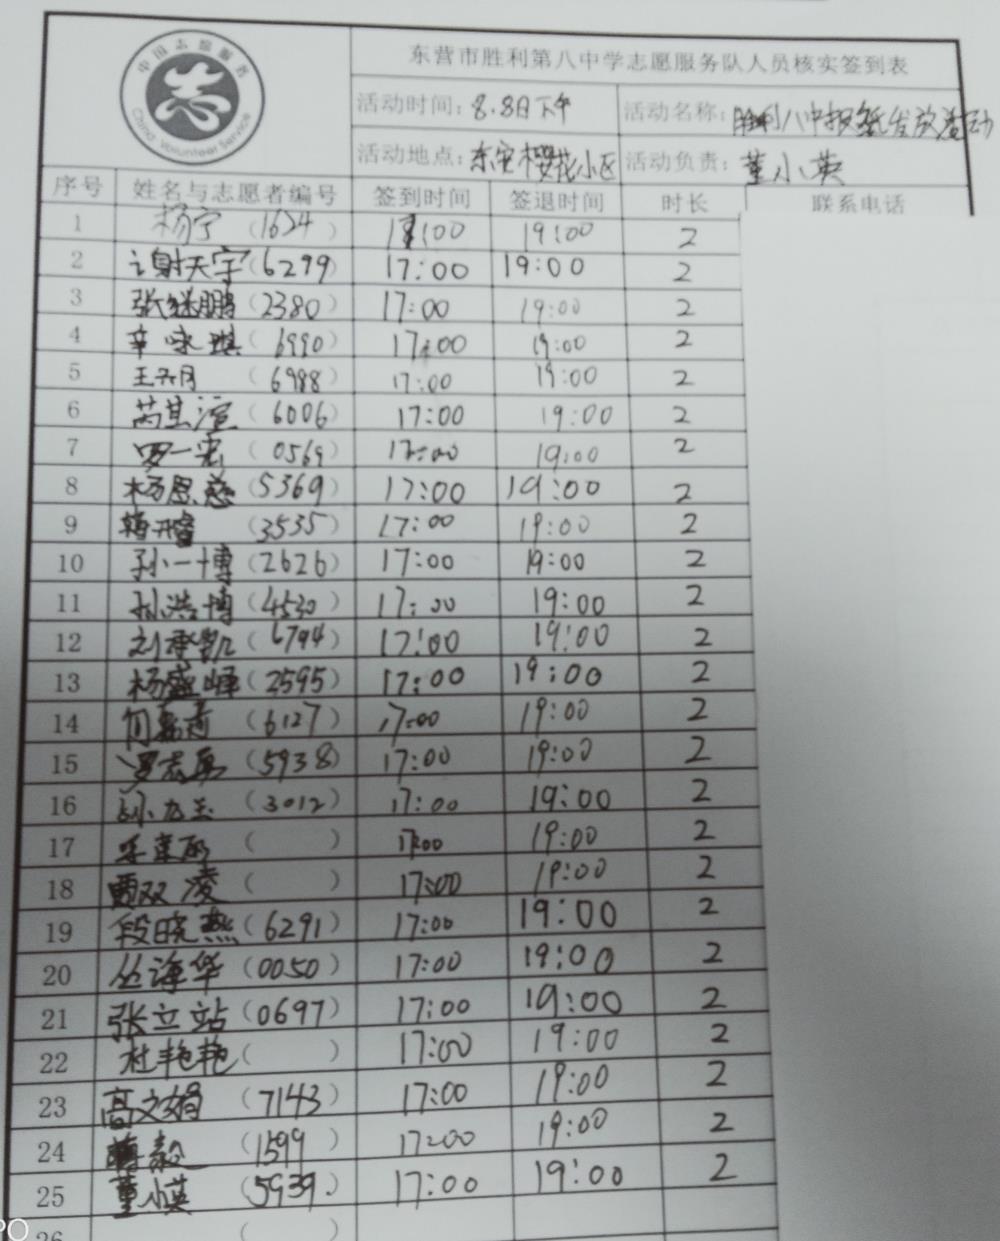 中国志愿服务
China Volunteer Service
东营市胜利第八中学志愿服务队人员核实签到表
活动时间：8.8日下午 活动名称：胜利八中报纸发放活动
活动地点：东安樱花小区 活动负责：董小英
序号 姓名与志愿者编号 签到时间 签退时间 时长 联系电话
1 杨宁（1624） 17:00 19:00 2
2 谢天宇（6299） 17:00 19:00 2
3 张继鹏（2380） 17:00 19:00 2
4 辛咏琪（6990） 17:00 19:00 2
5 （6988） 17:00 19:00 2
6 芮其渲（6006） 17:00 19:00 2
7 罗一宏（0569） 17:00 19:00 2
8 杨思慈（5369） 17:00 19:00 2
9 （3535） 17:00 19:00 2
10 孙一博（2626） 17:00 19:00 2
11 孙浩博（4530） 17:00 19:00 2
12 刘承凯（6794） 17:00 19:00 2
13 杨盛峰（2595） 17:00 19:00 2
14 （6127） 17:00 19:00 2
15 （5938） 17:00 19:00 2
16 （3012） 17:00 19:00 2
17 （ ） 17:00 19:00 2
18 贾双凌（ ） 17:00 19:00 2
19 段晓燕（6291） 17:00 19:00 2
20 丛海华（0050） 17:00 19:00 2
21 张立站（0697） 17:00 19:00 2
22 杜艳艳（ ） 17:00 19:00 2
23 高文娟（7143） 17:00 19:00 2
24 蒋毅（1599） 17:00 19:00 2
25 董小英（5939） 17:00 19:00 2
26 （ ）